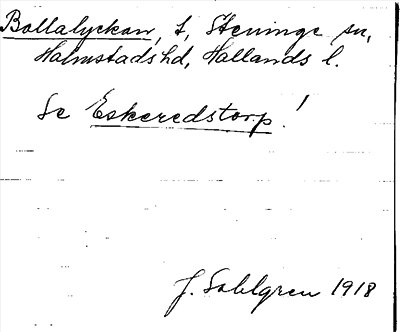 Bollalyckan, t, Steninge sn,
Halmstads hd, Hallands l.
Se Eskeredstorp!
J. Sahlgren 1918